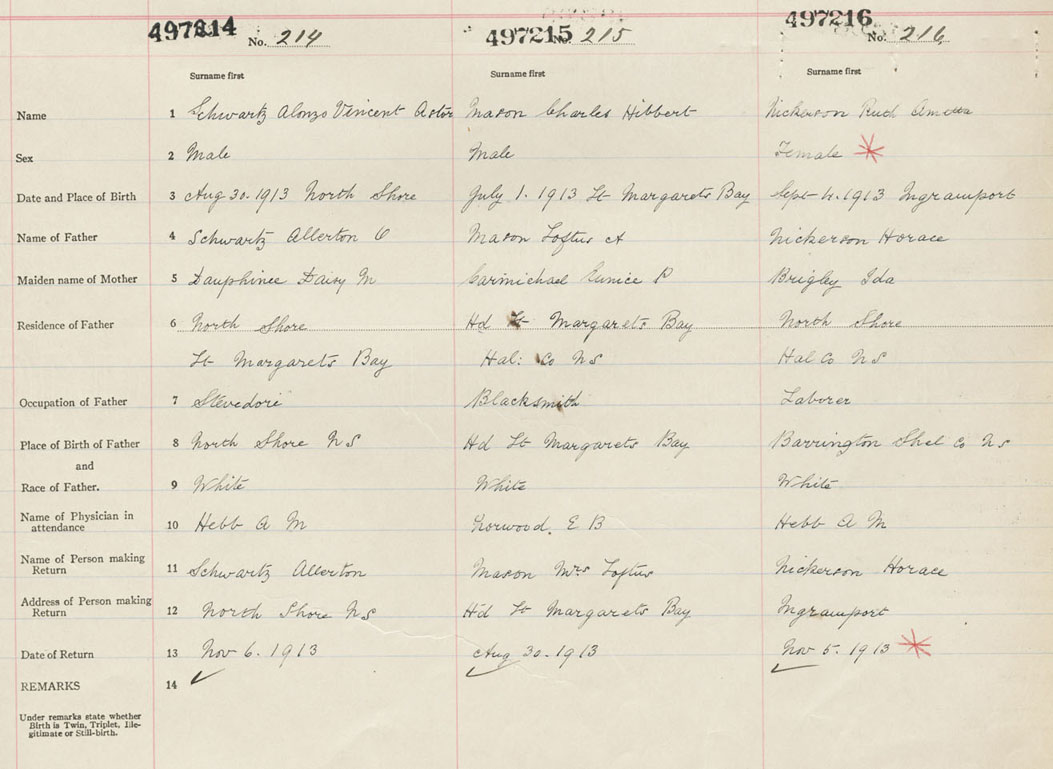 497214 No. 214 497215 No. 215 497216 No. 216
Surname first Surname first Surname first
Name 1 Schwartz Alonzo Vincent Astor Mason Charles Hibbert Nickerson
Sex 2 Male Male Female
Date and Place of Birth 3 Aug 30. 1913 North Shore July 1. 1913 St Margarets Bay Sept 4. 1913 Ingramport
Name of Father 4 Schwartz Allerton Mason Loftus A Nickerson Horace
Maiden name of Mother 5 Dauphinee Daisy M Carmichael Eunice P Brigley Ida
Residence of Father 6 North Shore Hd St Margarets Bay North Shore
St Margarets Bay Hal: Co N S Hal Co N S
Occupation of Father 7 Stevedore Blacksmith Laborer
Place of Birth of Father 8 North Shore N S Hd St Margarets Bay Barrington Shel Co N S
and
Race of Father. 9 White White White
Name of Physician in
attendance 10 Hebb A M Norwood. E B Hebb A M
Name of Person making
Return 11 Schwartz Allerton Mason Mrs Loftus Nickerson Horace
Address of Person making
Return 12 North Shore N S Hd St Margarets Bay Ingramport
Date of Return 13 Nov 6. 1913 Aug 30. 1913 Nov 5. 1913
REMARKS 14
Under remarks state whether
Birth is Twin, Triplet, Ille-
gitimate or Still-birth.